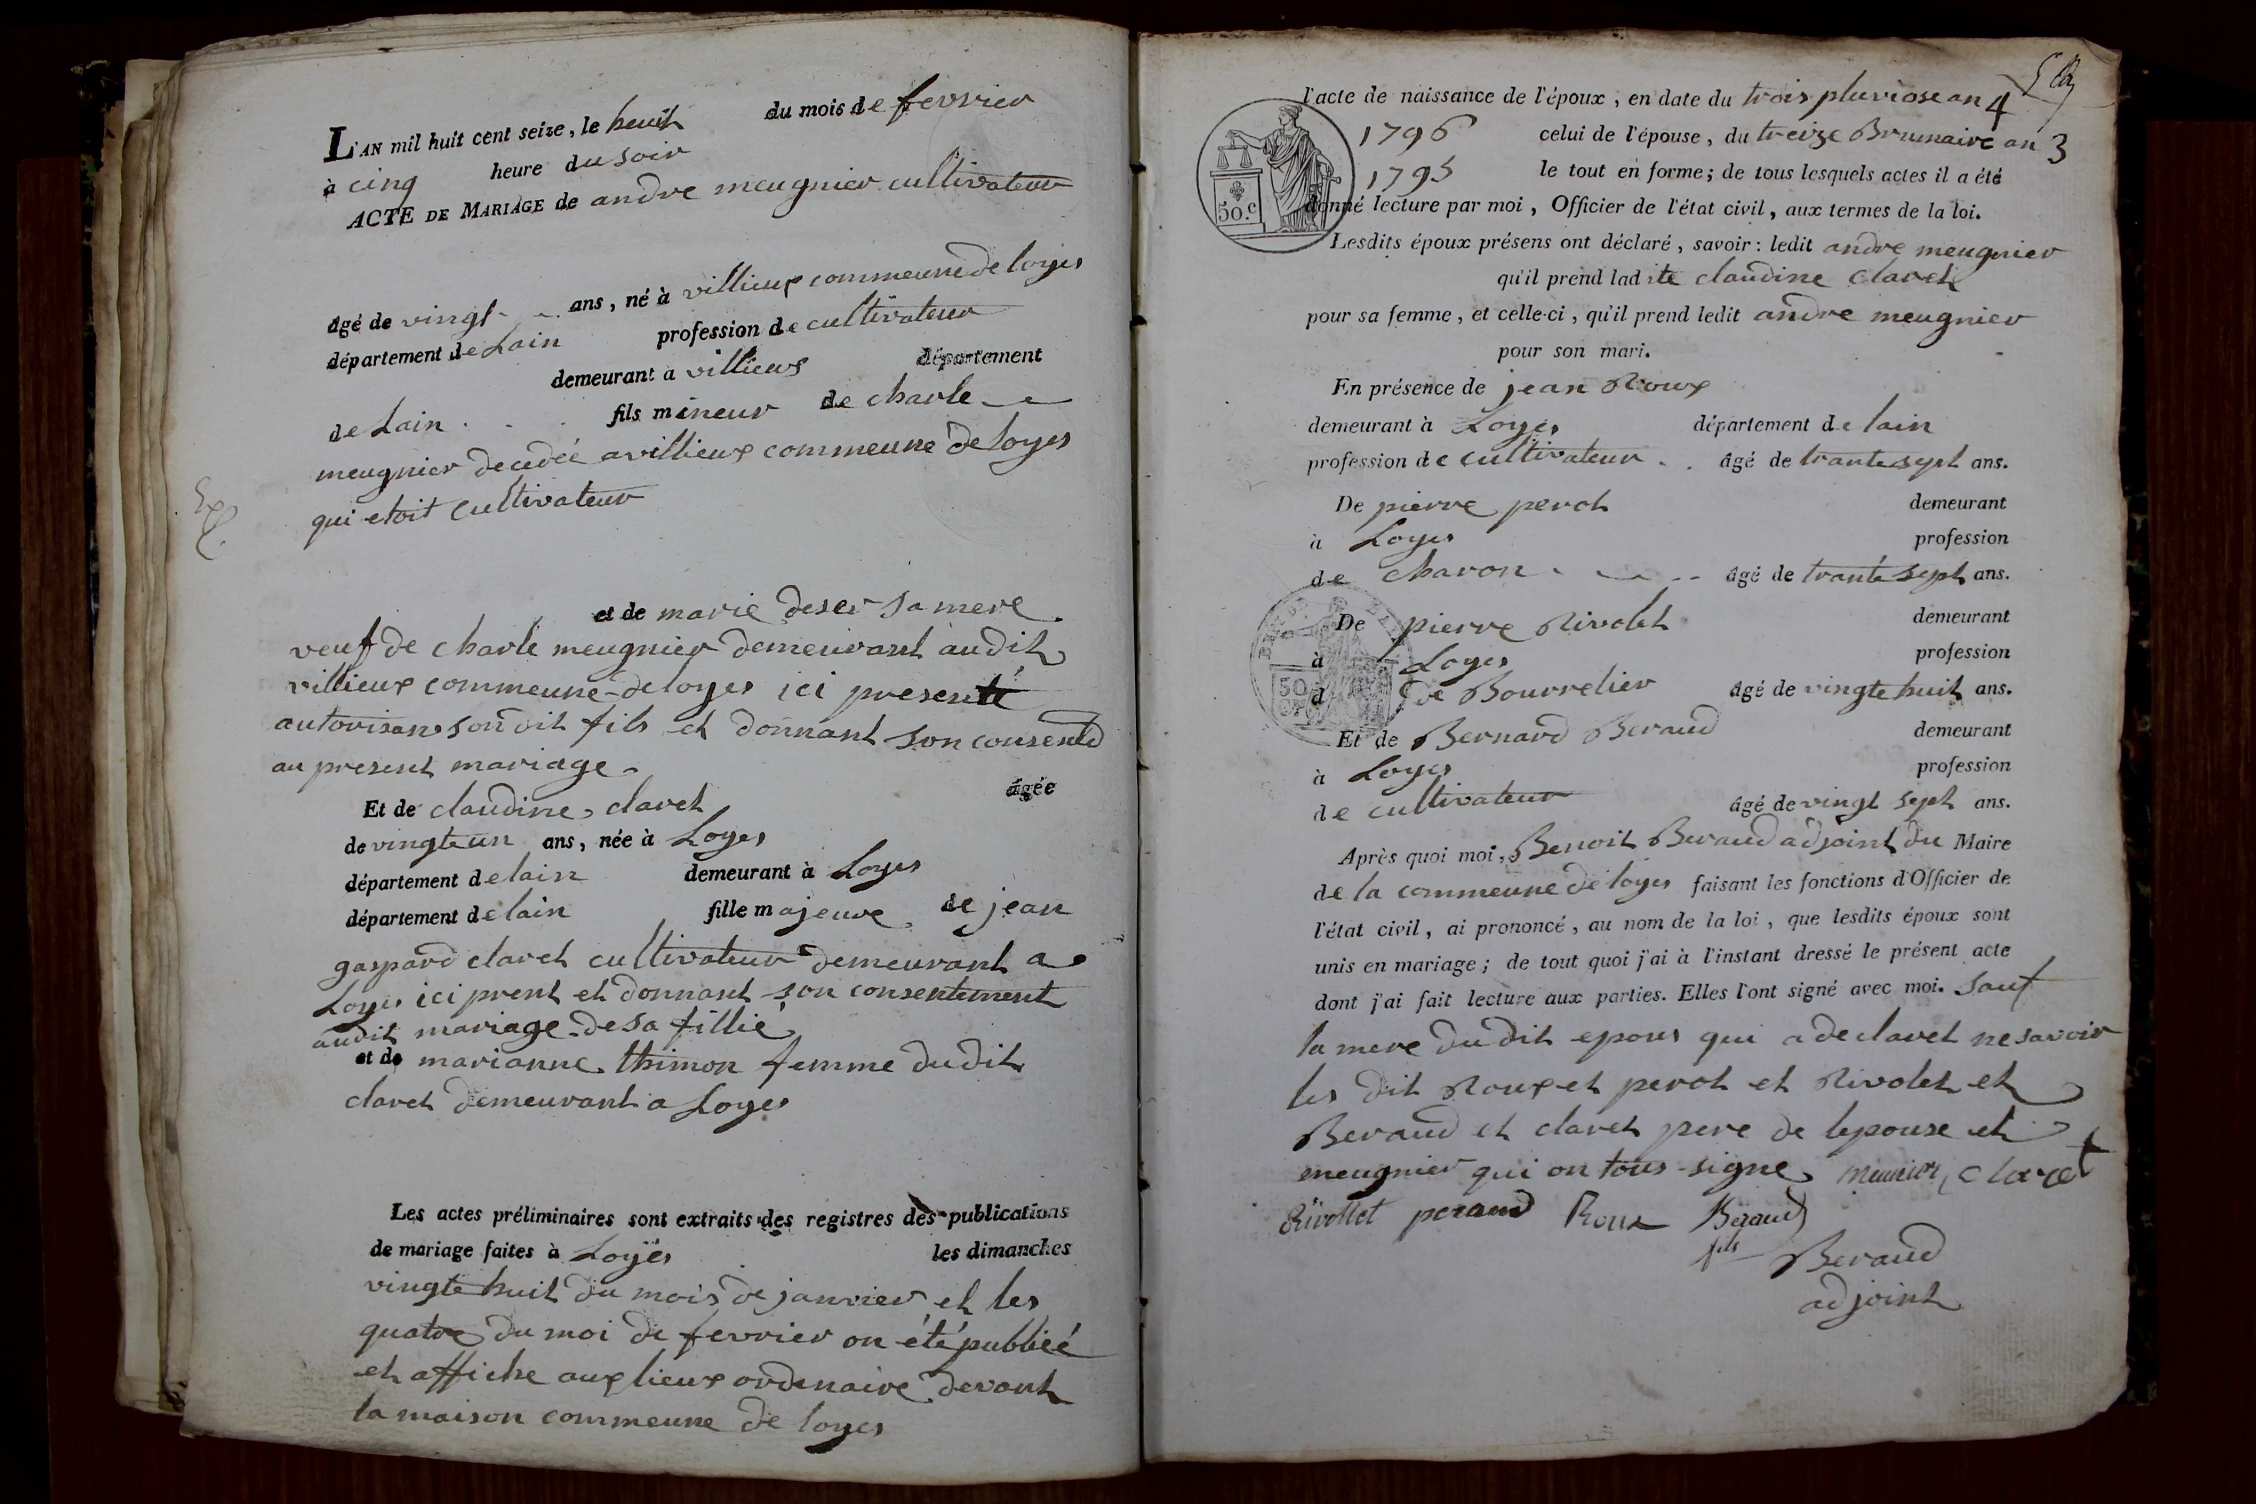 L'AN mil huit cent seize, le heuit du mois de fevrier
à cinq heure du soir
ACTE DE MARIAGE de andre meugnier cultivateur
âgé de vingt ans, né à villieux commeune de loyes
département de Lain profession de cultivateur
demeurant à villieus département
de Lain fils mineur de charle
meugnier decedée a villieux commeune de loyes
qui etoit cultivateur
et de marie deser sa mere
veuf de charle meugnier demeurant audit
villieux commeune de loyes ici presente
autorisan son dit fils et donnant son consentd
au present mariage
Et de claudine claret âgée
de vingte un ans, née à Loyes
département de lain demeurant à Loyes
département de lain fille majeure de jean
gaspard claret cultivateur demeurant a
Loyes ici prent et donnant son consentement
audit mariage de sa fillie
et de marianne thimon femme du dit
claret demeurant a Loyes
Les actes préliminaires sont extraits des registres des publications
de mariage faites à Loyes les dimanches
vingte huit du mois de janvier et les
quatre du moi de fevrier on été publiéé
et affiche aux lieux ordenaire devant
la maison commeune de loyes
l'acte de naissance de l'époux, en date du trois pluviose an 4
1796 celui de l'épouse, du treize Brumaire an 3
1795 le tout en forme; de tous lesquels actes il a été
donné lecture par moi, Officier de l'état civil, aux termes de la loi.
50.c
Lesdits époux présens ont déclaré, savoir: ledit andre meugnier
qu'il prend ladite claudine claret
pour sa femme, et celle-ci, qu'il prend ledit andre meugnier
pour son mari.
En présence de jean Roux
demeurant à Loyes département de lain
profession de cultivateur âgé de trante sept ans.
De pierre perot demeurant
à Loyes profession
de charon âgé de trante sept ans.
De pierre Rivolet demeurant
à Loyes profession
de Bourrelier âgé de vingte huit ans.
Et de Bernard Beraud demeurant
à Loyes profession
de cultivateur âgé de vingt sept ans.
Après quoi moi, Benoit Beraud adjoint du Maire
de la commeune de loyes faisant les fonctions d'Officier de
l'état civil, ai prononcé, au nom de la loi, que lesdits époux sont
unis en mariage; de tout quoi j'ai à l'instant dressé le présent acte
dont j'ai fait lecture aux parties. Elles l'ont signé avec moi. Sauf
la mere du dit epous qui a declaret ne savoir
les dit Roux et perot et Rivolet et
Beraud et claret pere de lepouse et
meugnier qui on tous signe meunier claret
Rivollet peraud Roux Beraud
fils
Beraud
adjoint